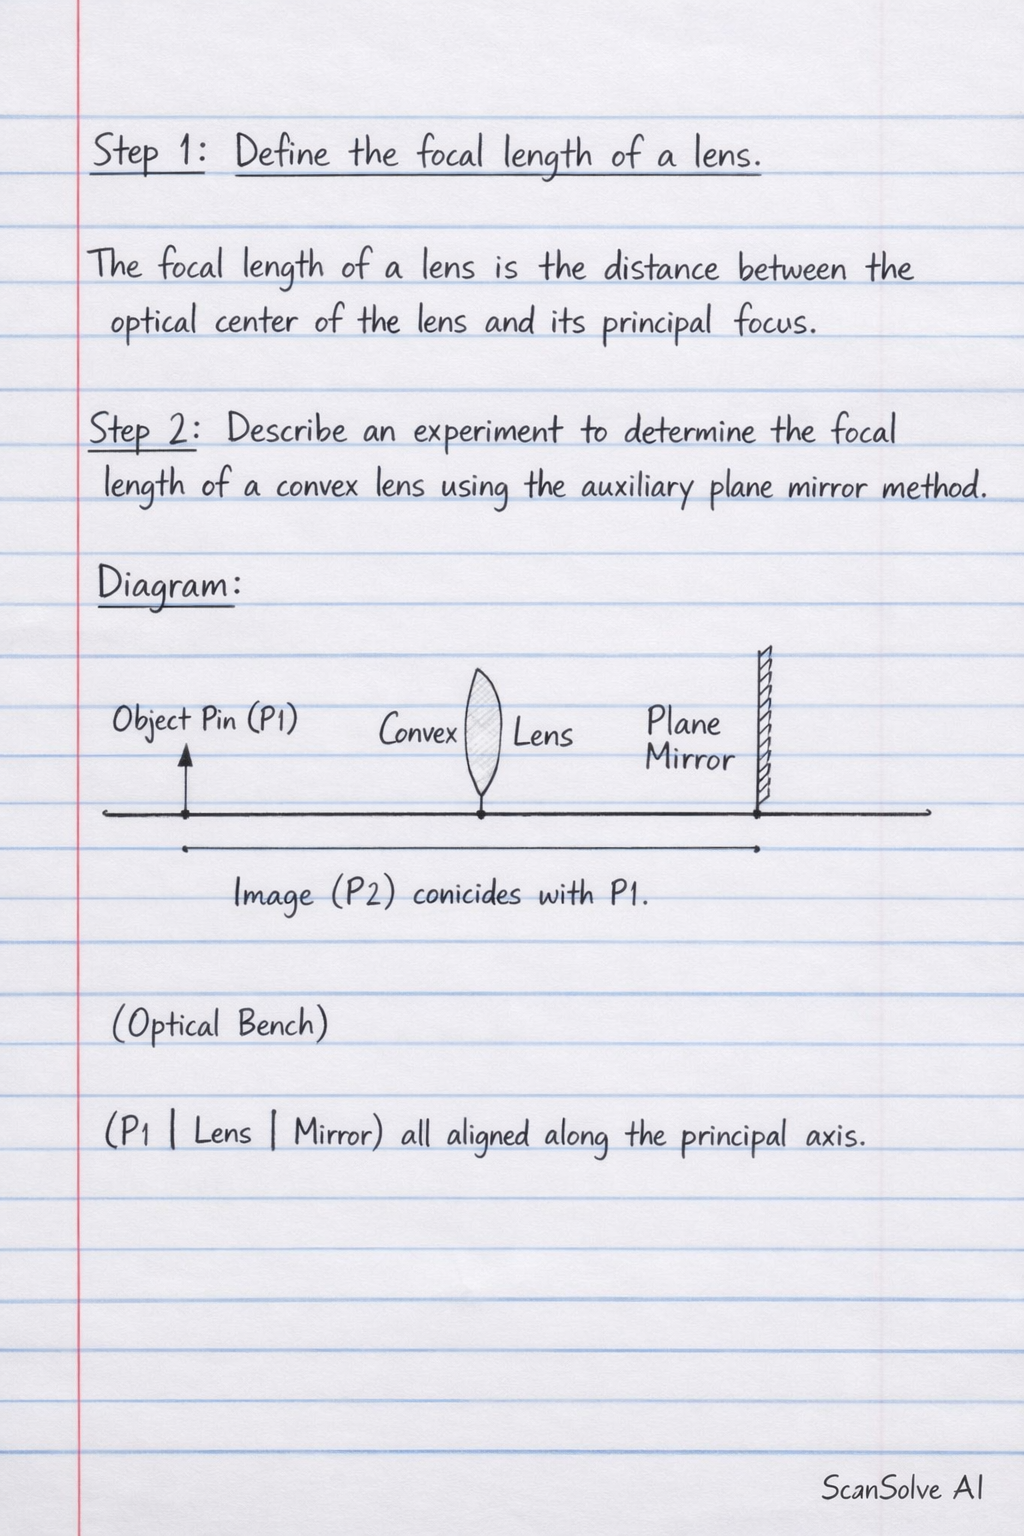 Step 1: Define the focal length of a lens.
The focal length of a lens is the distance between the
optical center of the lens and its principal focus.
Step 2: Describe an experiment to determine the focal
length of a convex lens using the auxiliary plane mirror method.
Diagram:
Object Pin (P1)
Convex Lens
Plane
Mirror
Image (P2) conicides with P1.
(Optical Bench)
(P1 | Lens | Mirror) all aligned along the principal axis.
ScanSolve AI